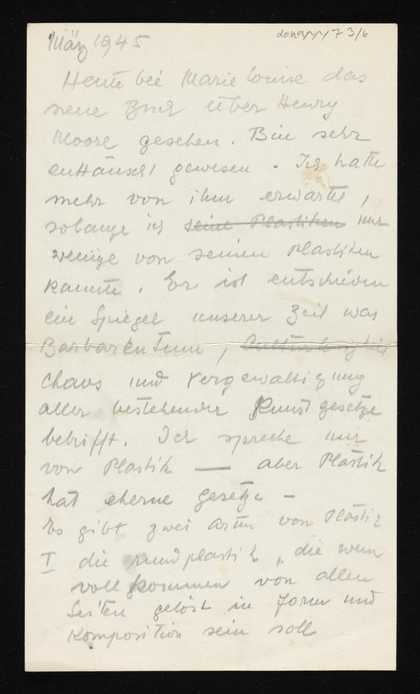 März 1945
Heute bei Marie Louise das
neue Buch über Henry
Moore gesehen. Bin sehr
enttäuscht gewesen. Ich hatte
mehr von ihm erwartet,
solange ich seine Plastiken nur
wenige von seinen Plastiken
kannte. Er ist entschieden
ein Spiegel unserer Zeit was
Barbarentum,
Chaos und Vergewaltigung
aller bestehender Kunstgesetze
betrifft. Ich spreche nur
von Plastik — aber Plastik
hat eherne Gesetze –
Es gibt zwei Arten von Plastik
I die Rundplastik, die wenn
vollkommen von allen
Seiten gelöst in Form und
Komposition sein soll